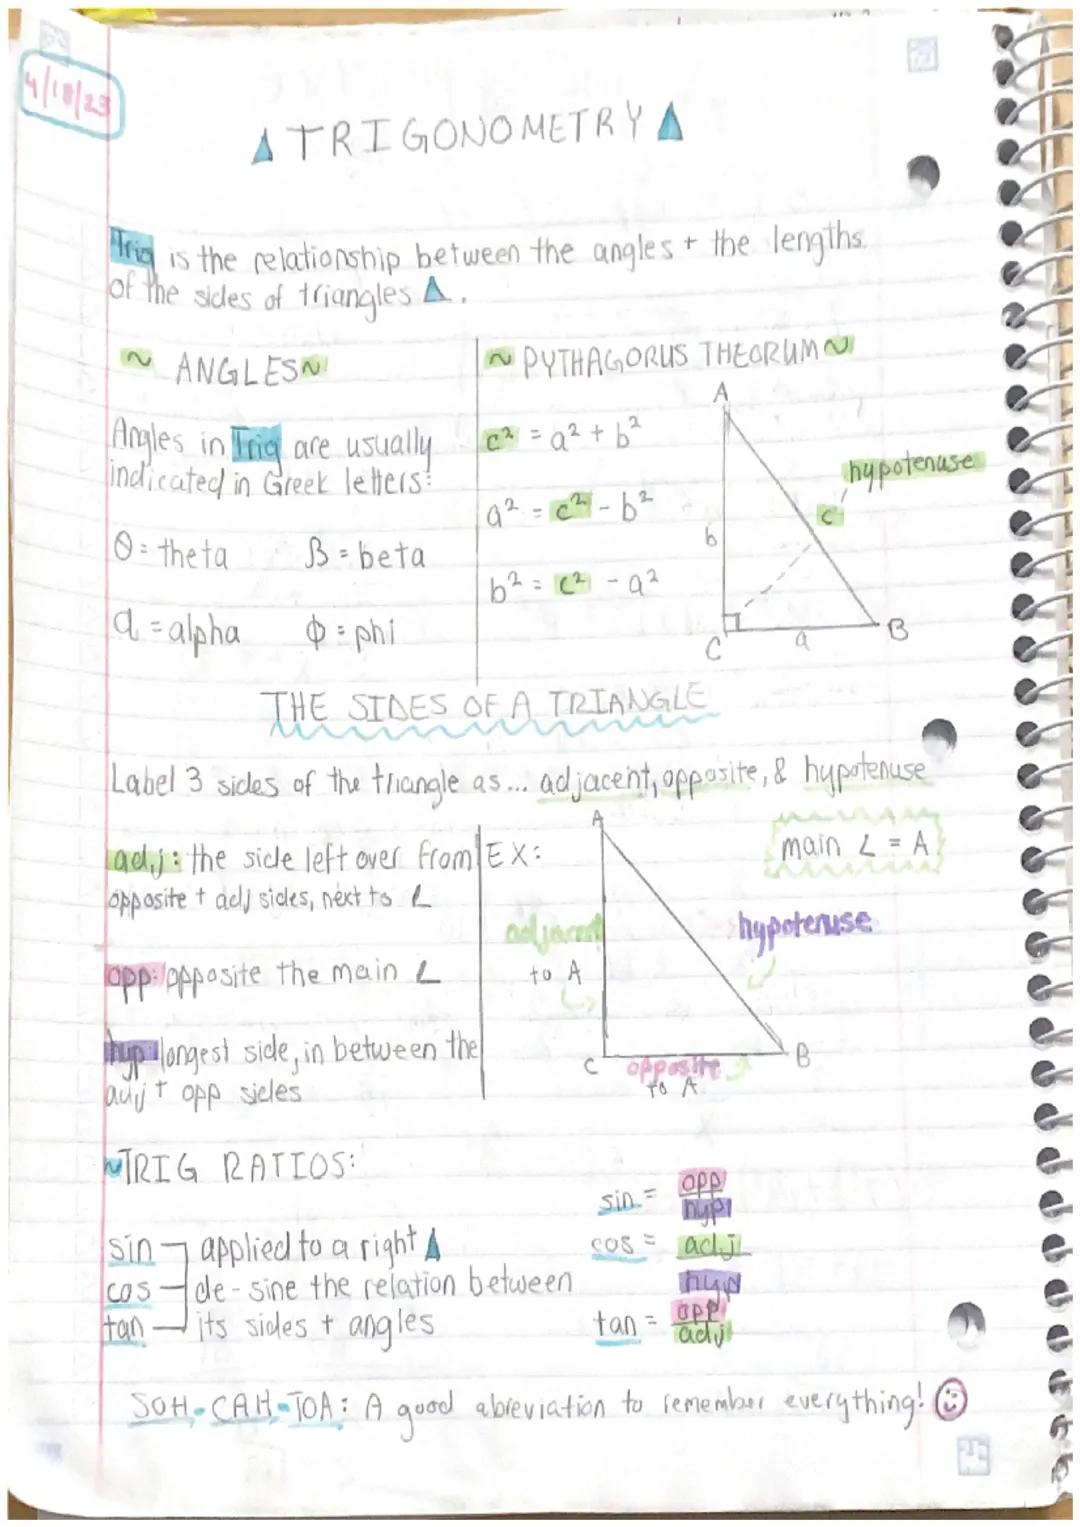 4/18/23
TRIGONOMETRY
Trig is the relationship between the angles + the lengths
of the sides of triangles
~ ANGLES ~
Angles in Trig are usually
indicated in Greek letters:
θ = theta β = beta
α = alpha ϕ = phi
~ PYTHAGORUS THEORUM ~
c² = a² + b²
a² = c² - b²
b² = c² - a²
A
hypotenuse
c
b
C
a
B
THE SIDES OF A TRIANGLE
Label 3 sides of the triangle as... adjacent, opposite, & hypotenuse
adj: the side left over from
opposite + adj sides, next to ∠
opp: opposite the main ∠
hyp: longest side, in between the
adj + opp sides
EX:
A
main ∠ = A
adjacent
to A
hypotenuse
C
opposite
to A
B
~TRIG RATIOS:
sin applied to a right
cos de-sine the relation between
tan its sides + angles
sin = opp
hyp
cos = adj
hyp
tan = opp
adj
SOH-CAH-TOA: A good abreviation to remember everything!